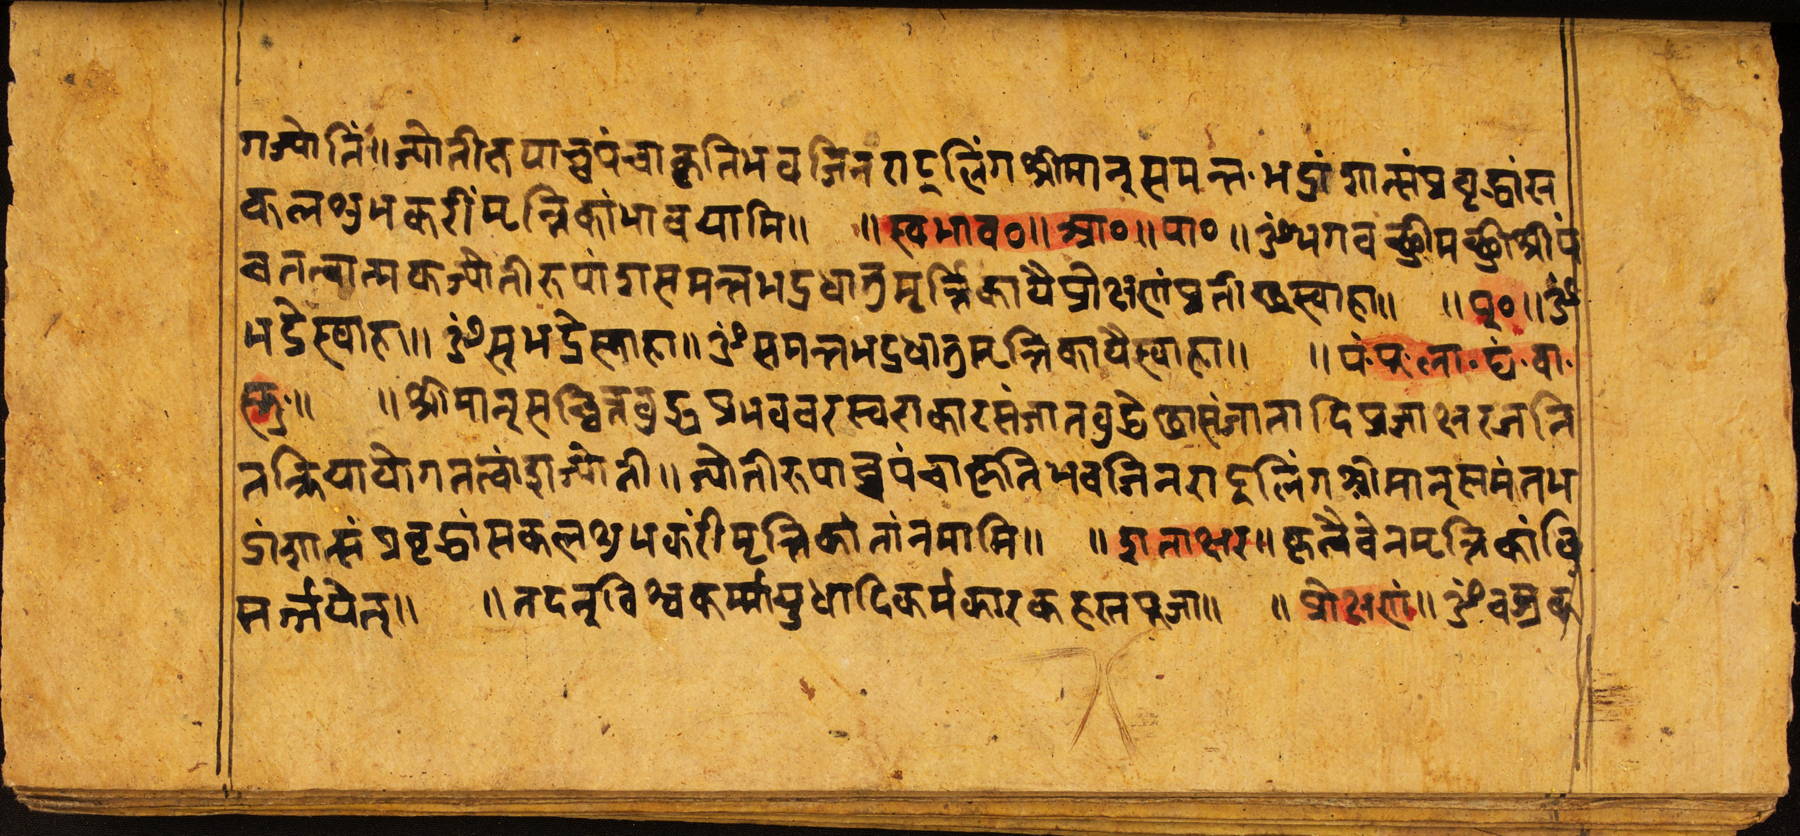 गज्योतिं॥ज्योतीरुपाच्चपंचाकृतिभवजिनराट्लिंगश्रीमान्समन्त·भद्रांशात्संप्रवृद्धांस
कलशुभकरीं मृत्तिकांभावयामि॥ ॥स्वभाव०॥आ०॥पा०॥ॐभगवच्छ्रीमच्छ्रीश्रीपं
चतत्वात्मकज्योतीरूपांशसमन्तभद्रधातुमृत्तिकायैप्रोक्षणंप्रतीच्छस्वाहा॥ ॥पू०॥ॐ
भद्रेस्वाहा॥ॐसुभद्रेस्वाहा॥ॐसमन्तभद्रधातुमृत्तिकायैस्वाहा॥ ॥पं·पू·ला·घं·वा·
स्तु·॥ ॥श्रीमान्सच्चित्तबुद्धप्रभववरस्वराकारसंजातबुद्धेछासंजातादिप्रजाक्षरजनि
तक्रियायोगतत्वांशज्योती॥ज्योतीरुपाच्चपंचाकृतिभवजिनराट्लिंगश्रीमान्समंतभ
द्रांशात्संप्रवृद्धांसकलशुभकरींमृत्तिकांतांनमामि॥ ॥शताक्षर॥कृत्वैवेनमृत्तिकांवि
सर्ज्जयेत्॥ ॥तदनुविश्वकर्म्मायुधादिकर्मकारकहस्तपूजा॥ ॥प्रोक्षणं॥ॐवज्रक